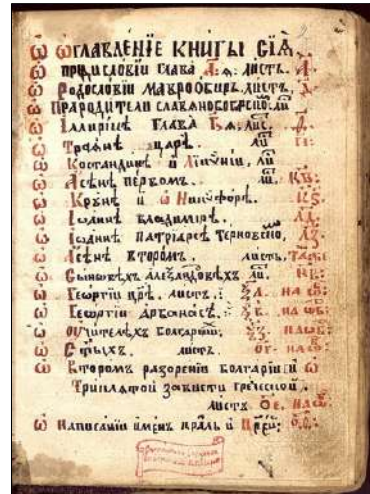 ѡ ѡГЛАВЛЕНІЕ КНИГЫ СІѦ
ѡ ПРИДИСЛОВІИ ГЛАВА А҃: ѧ: ЛИСТЪ. А҃
ѡ РОДОСЛОВІИ МАУРООБИРЪ, ЛИСТЪ,
ѡ ПРАРОДИТЕЛИ СЛАВѦНОБОБРСКІѠ: ЛИ
ѡ ІЛЛИРІИЦЕ ГЛАВА В҃: ѧ: ЛИС. Д҃.
ѡ ТРАѦНЕ ЦАРЕ. ЛИ
ѡ КОСТАНДИНЕ И ЛІКИНІИ, ЛИ
ѡ АСЕНЕ ПЕРВОМЪ. ЛИ. КВ҃:
ѡ КРУНЕ И ѡ НИКИФОРЕ. КЅ҃:
ѡ ІѠАННЕ ВЛАДИМІРЕ. ЛД҃:
ѡ ІѠАННЕ ПАТРІАРСЕ ТЕРНОВСКІѠ, ЛЗ҃:
ѡ АСЕНЕ ВТОРОМЪ. ЛИСТЪ,
ѡ СЫНОВЕХЪ АЛЕѮАНДОВЕХЪ ЛИ. Н҃В:
ѡ ГЕОРГІИ ЦРЕ. ЛИСТЪ.: Ѯ҃А. НА
ѡ ГЕОРГІИ АРБАНАСЕ. Ѯ҃В. НА
ѡ ОУЧИТЕЛЕХЪ БОЛГАРСКИ: Ѯ҃З. НА
ѡ СТЫХЪ. ЛИСТЪ. ОГ. НА
ѡ ВТОРОМЪ РАЗОРЕНІИ БОЛГАРІЕ И ѡ
ТРИКЛѦТОЙ ЗАВИСТИ ГРЕЧЕСКОЙ.
ЛИСТЪ О҃Е. НА
ѡ НАПИСАНІИ ИМЕНЪ КРАЛЬ И ЦРЕЙ: